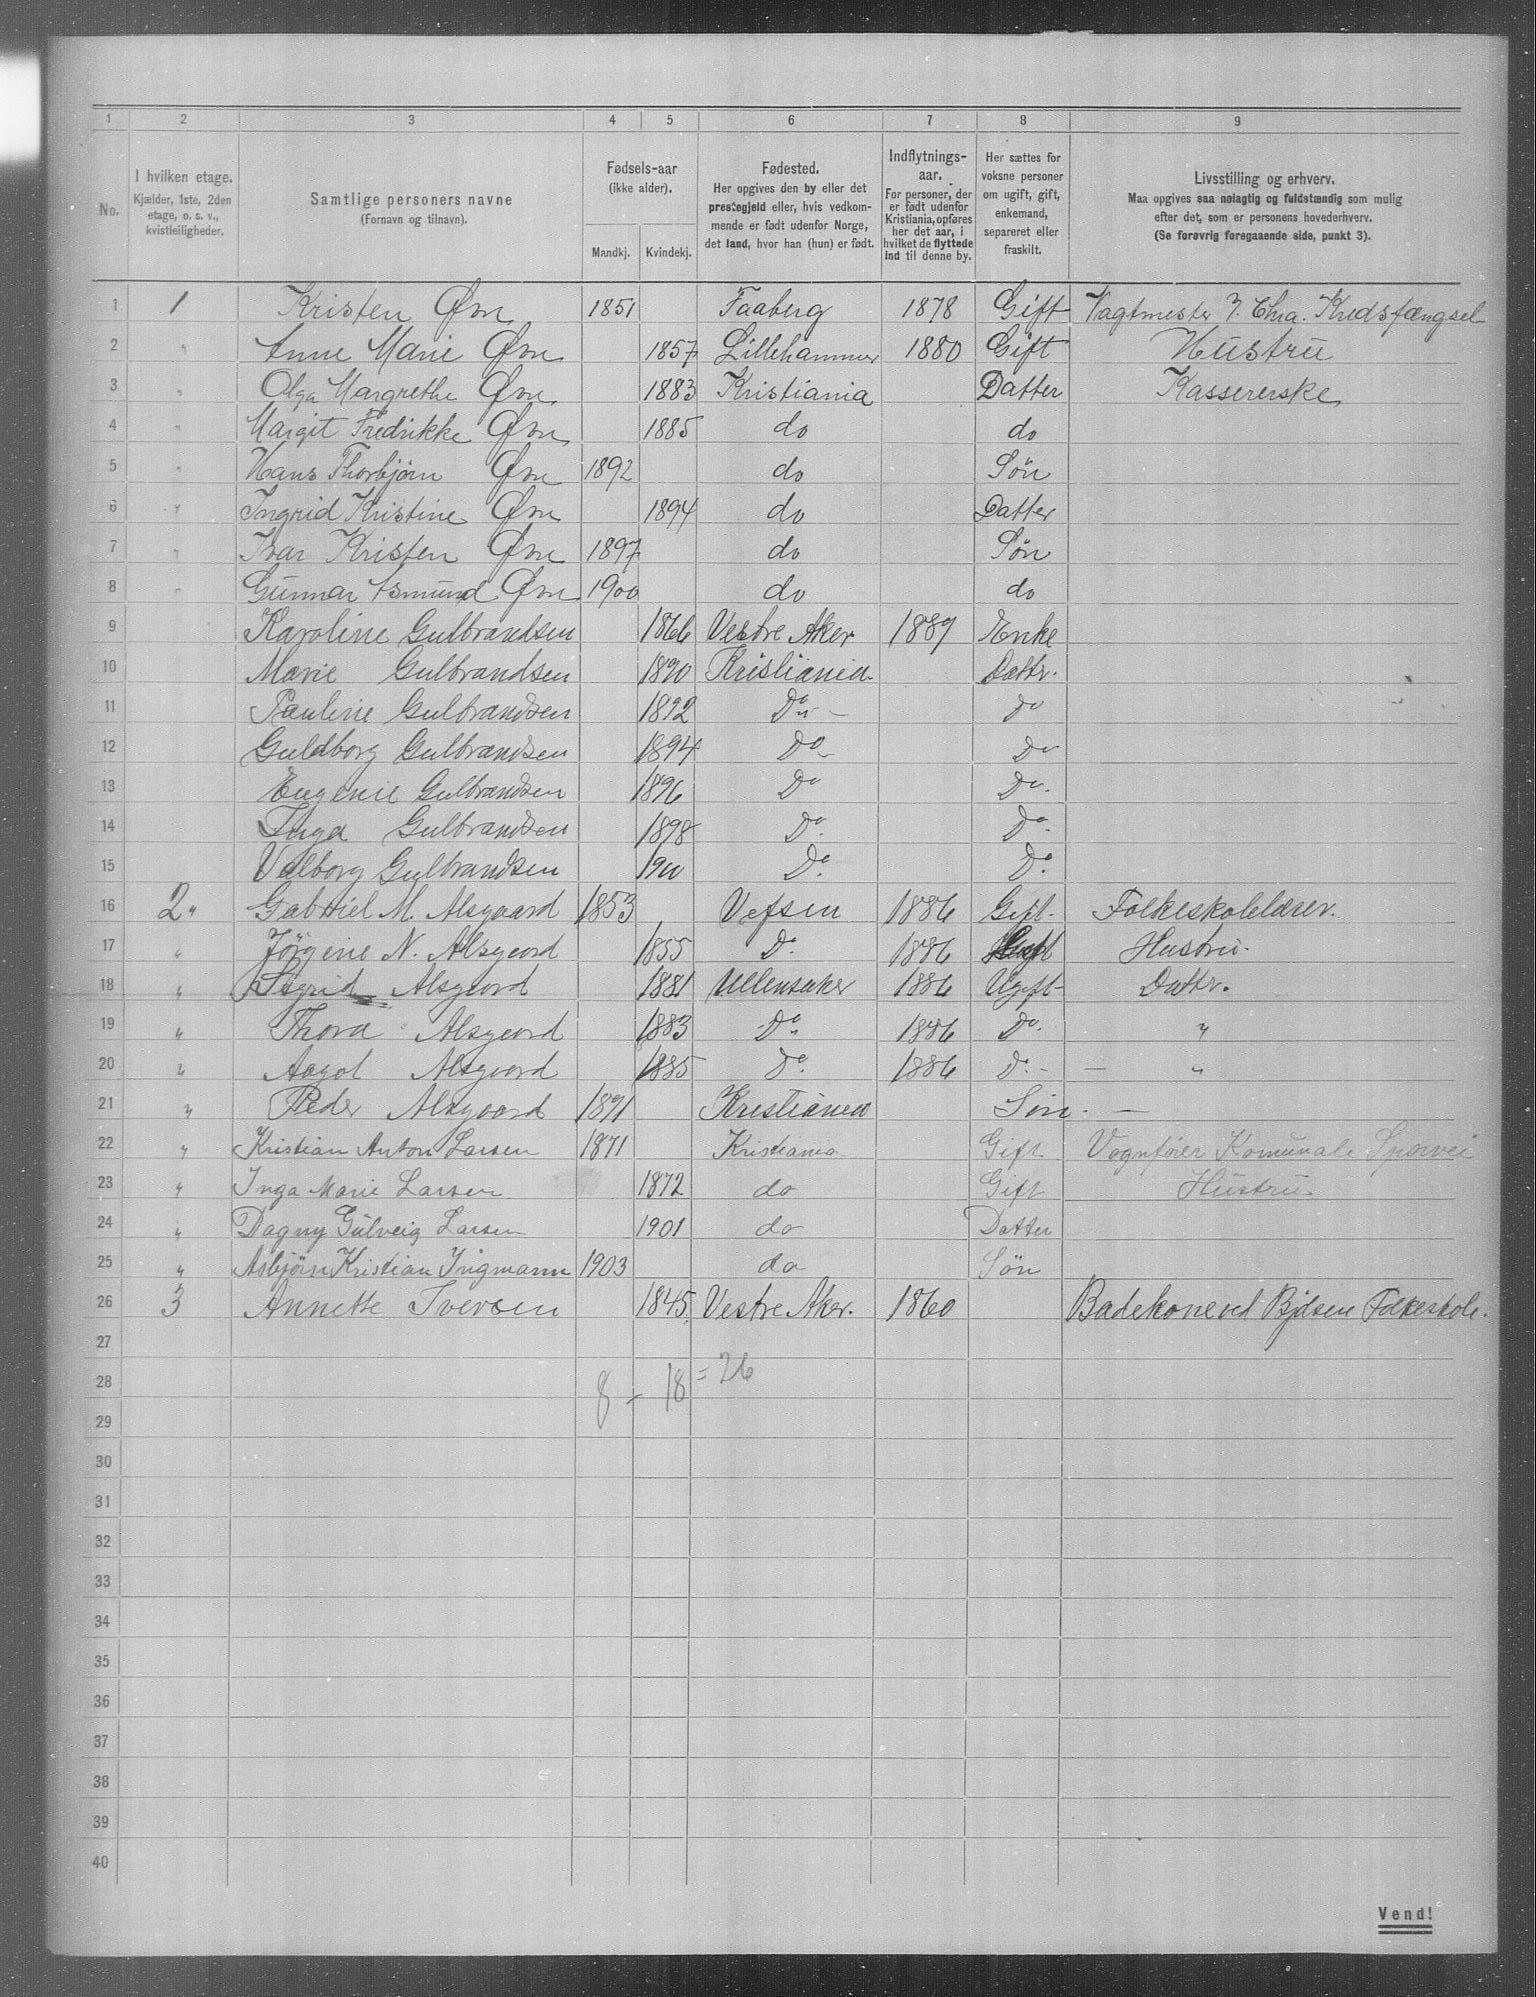 1 2 3 4 5 6 7 8 9
No.
I hvilken etage.
Kjælder, 1ste, 2den
etage, o. s. v.,
kvistleiligheder.
Samtlige personers navne
(Fornavn og tilnavn).
Fødsels-aar
(ikke alder).
Mandkj. Kvindekj.
Fødested.
Her opgives den by eller det
prestegjeld eller, hvis vedkom-
mende er født udenfor Norge,
det land, hvor han (hun) er født.
Indflytnings-
aar.
For personer, der
er født udenfor
Kristiania, opføres
her det aar, i
hvilket de flyttede
ind til denne by.
Her sættes for
voksne personer
om ugift, gift,
enkemand,
separeret eller
fraskilt.
Livsstilling og erhverv.
Maa opgives saa nøiagtig og fuldstændig som mulig
efter det, som er personens hovederhverv.
(Se forøvrig foregaaende side, punkt 3).
1 1 Kristen Øvn 1851 Faaberg 1878 Gift Vagtmester v. Chra. Kredsfængsel
2 " Anne Marie Øvn 1857 Lillehammer 1880 Gift Hustru
3 " Olga Margrethe Øvn 1883 Kristiania Datter Kassererske
4 " Margit Fredrikke Øvn 1885 do do
5 " Hans Thorbjørn Øvn 1892 do Søn
6 " Ingrid Kristine Øvn 1894 do Datter
7 " Ivar Kristen Øvn 1897 do Søn
8 " Gunnar Asmund Øvn 1900 do do
9 Karoline Gulbrandsen 1866 Vestre Aker 1889 Enke
10 Marie Gulbrandsen 1890 Kristiania Dattr.
11 Pauline Gulbrandsen 1892 Do " - do
12 Guldborg Gulbrandsen 1894 Do Do
13 Eugenie Gulbrandsen 1896 Do Do.
14 Inga Gulbrandsen 1898 Do. Do.
15 Valborg Gulbrandsen 1900 Do. Do.
16 2 " Gabriel M. Alsgaard 1853 Vefsen 1886 Gift. Folkeskolelærer.
17 " Jørgine N. Alsgaard 1855 Do. 1886 Hustru.
18 " Sigrid Alsgaard 1881 Ullensaker 1886 Ugift Dattr.
19 " Thora Alsgaard 1883 Do. 1886 Do. "
20 " Aagot Alsgaard 1885 Do. 1886 Do. - - "
21 " Peder Alsgaard 1891 Kristiania Søn. -
22 " Kristian Anton Larsen 1871 Kristiania Gift Vognfører Komunale Sporvei
23 " Inga Marie Larsen 1872 do Gift Hustru
24 " Dagny Gulveig Larsen 1901 do Datter
25 " Asbjørn Kristian Ingmann 1903 do Søn
26 3 Annette Iversen 1845 Vestre Aker. 1860 Badekone ved Bjølsen Folkeskole.
27
28 8 - 18 = 26
29
30
31
32
33
34
35
36
37
38
39
40
Vend!